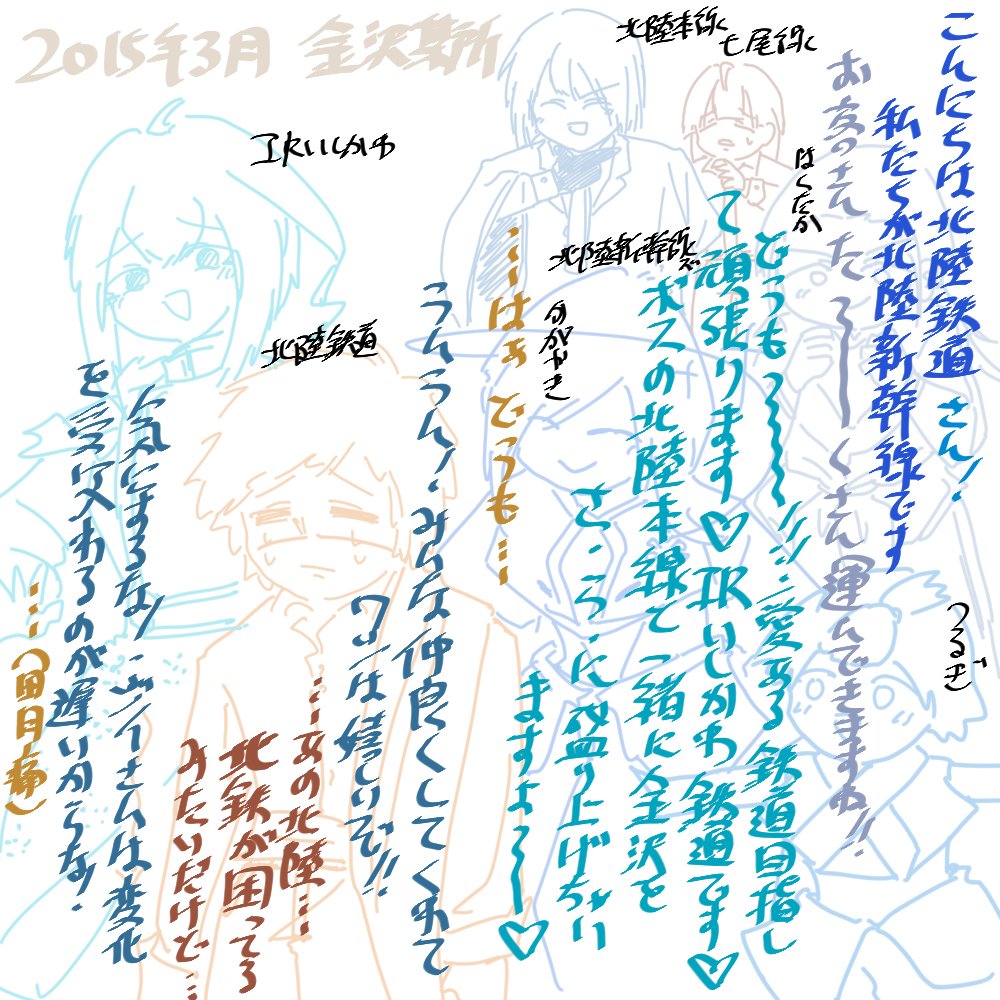 2015年3月 金沢某所
北陸本線
七尾線
IRいしかわ
はくたか
北陸新幹線ズ
かがやき
北陸鉄道
つるぎ
こんにちは北陸鉄道さん！
私たちが北陸新幹線です
お客さんたろ〜〜くさん運んできますね!!
どうも〜〜〜!!!愛ある鉄道目指し
て頑張ります♡IRいしかわ鉄道です♡
ボスの北陸本線と一緒に金沢を
さ・ら・に盛り上げちゃい
ますよ〜〜♡
…はぁ どうも…
うんうん！みんな仲良くしてくれて
ワシは嬉しいで!!
…あの北陸…
北鉄が困ってる
みたいだけど…
気にするな！
を受け入れるのが遅いからな！
…(胃痛)